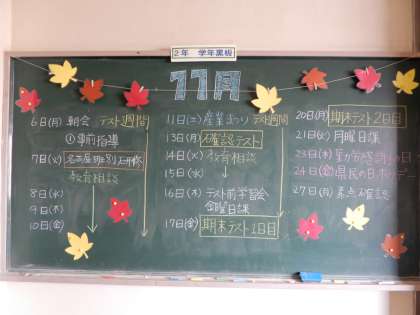 2年 学年黒板
11月
6日(月) 朝会 テスト週間
①事前指導
7日(火) 名古屋班別研修
教育相談
8日(水)
9日(木)
10日(金)
11日(土) 産業まつり テスト週間
13日(月) 確認テスト
14日(火) 教育相談
15日(水)
16日(木) テスト前学習会
金曜日課
17日(金) 期末テスト1日目
20日(月) 期末テスト2日目
21日(火) 月曜日課
23日(木) 勤労感謝の日
24日(金) 県民の日ホリデー
27日(月) 素点確認